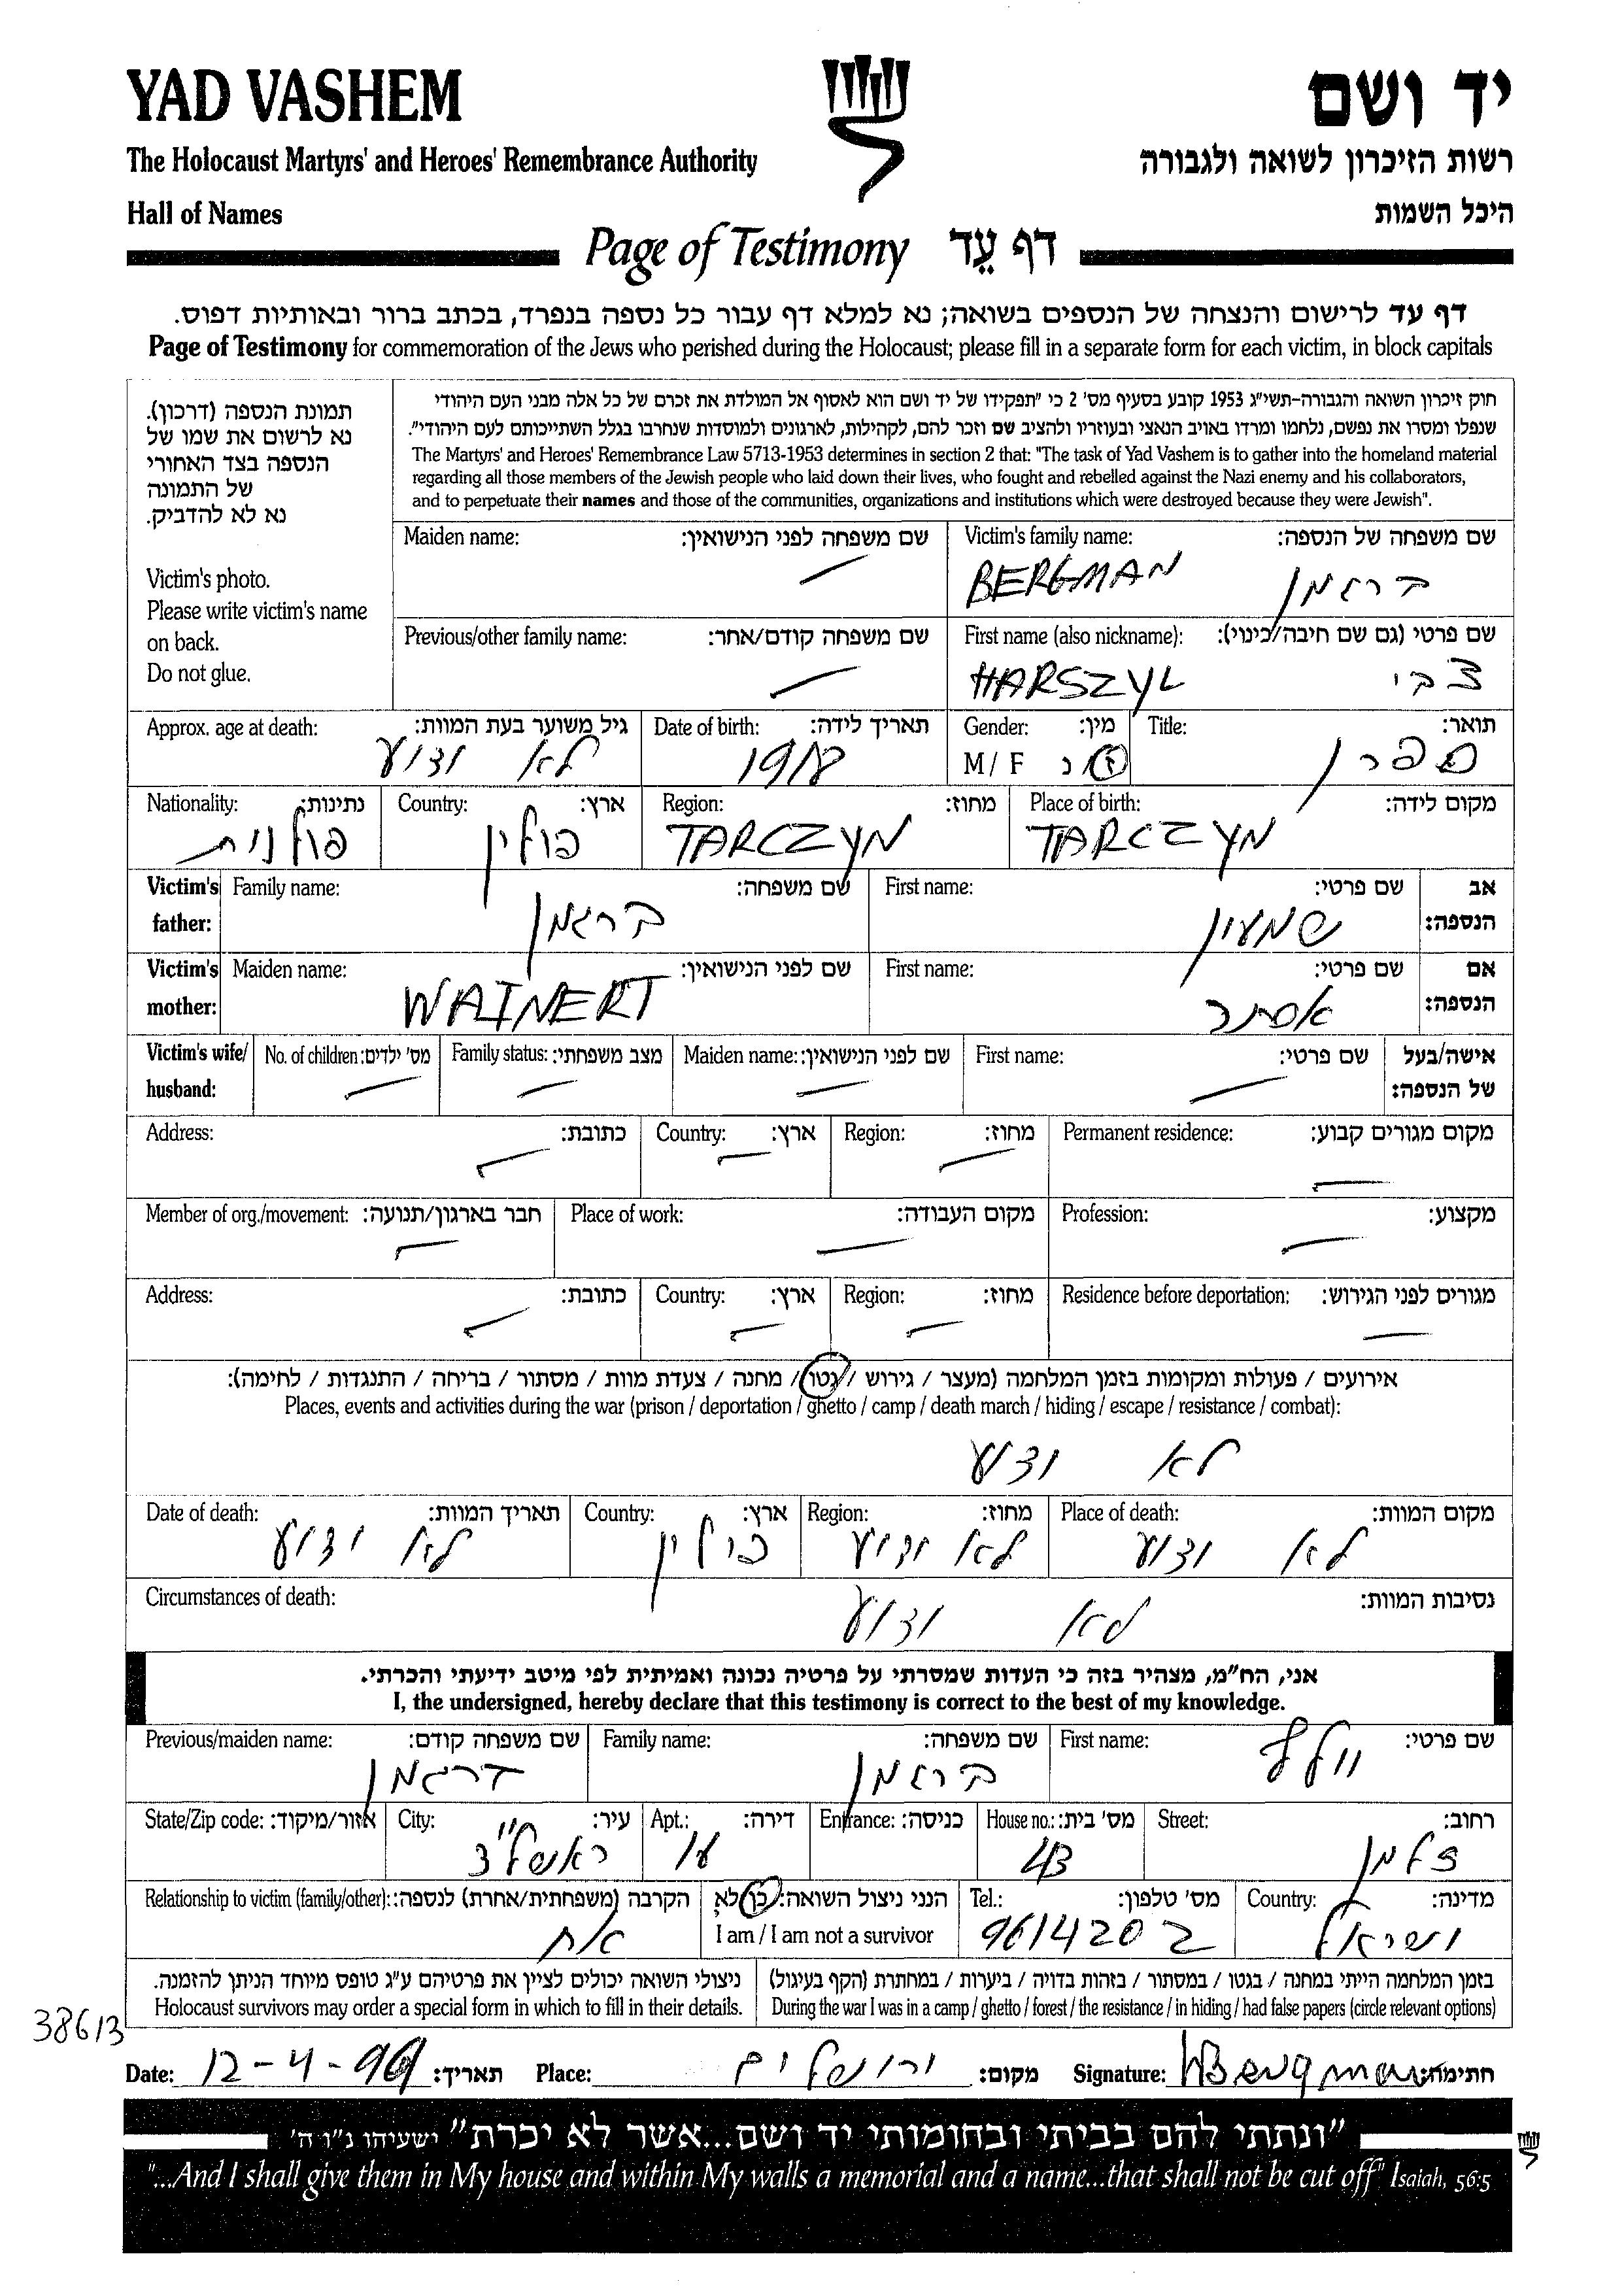 YAD VASHEM
יד ושם
The Holocaust Martyrs' and Heroes' Remembrance Authority
רשות הזיכרון לשואה ולגבורה
Hall of Names
היכל השמות
Page of Testimony דף עֵד
דף עד לרישום והנצחה של הנספים בשואה; נא למלא דף עבור כל נספה בנפרד, בכתב ברור ובאותיות דפוס.
Page of Testimony for commemoration of the Jews who perished during the Holocaust; please fill in a separate form for each victim, in block capitals
תמונת הנספה (דרכון).
נא לרשום את שמו של
הנספה בצד האחורי
של התמונה
נא לא להדביק.
Victim's photo.
Please write victim's name
on back.
Do not glue.
חוק זיכרון השואה והגבורה-תשי"ג 1953 קובע בסעיף מס' 2 כי "תפקידו של יד ושם הוא לאסוף אל המולדת את זכרם של כל אלה מבני העם היהודי
שנפלו ומסרו את נפשם, נלחמו ומרדו באויב הנאצי ובעוזריו ולהציב שם וזכר להם, לקהילות, לארגונים ולמוסדות שנחרבו בגלל השתייכותם לעם היהודי".
The Martyrs' and Heroes' Remembrance Law 5713-1953 determines in section 2 that: "The task of Yad Vashem is to gather into the homeland material
regarding all those members of the Jewish people who laid down their lives, who fought and rebelled against the Nazi enemy and his collaborators,
and to perpetuate their names and those of the communities, organizations and institutions which were destroyed because they were Jewish".
Maiden name: שם משפחה לפני הנישואין:
Victim's family name: שם משפחה של הנספה:
BERGMAN ברגמן
Previous/other family name: שם משפחה קודם/אחר:
First name (also nickname): שם פרטי (גם שם חיבה/כינוי):
HARSZYL צבי
Approx. age at death: גיל משוער בעת המוות:
לא ידוע
Date of birth: תאריך לידה:
1918
Gender: מין:
M / F ז נ
Title: תואר:
Nationality: נתינות:
פולנית
Country: ארץ:
פולין
Region: מחוז:
TARCZYN
Place of birth: מקום לידה:
TARCZYN
Victim's father: אב הנספה:
Family name: שם משפחה:
ברגמן
First name: שם פרטי:
שמעון
Victim's mother: אם הנספה:
Maiden name: שם לפני הנישואין:
WAINERT
First name: שם פרטי:
אסתר
Victim's wife/ husband: אישה/בעל של הנספה:
No. of children: מס' ילדים:
Family status: מצב משפחתי:
Maiden name: שם לפני הנישואין:
First name: שם פרטי:
Address: כתובת:
Country: ארץ:
Region: מחוז:
Permanent residence: מקום מגורים קבוע:
Member of org./movement: חבר בארגון/תנועה:
Place of work: מקום העבודה:
Profession: מקצוע:
Address: כתובת:
Country: ארץ:
Region: מחוז:
Residence before deportation: מגורים לפני הגירוש:
אירועים / פעולות ומקומות בזמן המלחמה (מעצר / גירוש / גטו / מחנה / צעדת מוות / מסתור / בריחה / התנגדות / לחימה):
Places, events and activities during the war (prison / deportation / ghetto / camp / death march / hiding / escape / resistance / combat):
לא ידוע
Date of death: תאריך המוות:
לא ידוע
Country: ארץ:
פולין
Region: מחוז:
לא ידוע
Place of death: מקום המוות:
לא ידוע
Circumstances of death: נסיבות המוות:
לא ידוע
אני, הח"מ, מצהיר בזה כי העדות שמסרתי על פרטיה נכונה ואמיתית לפי מיטב ידיעתי והכרתי.
I, the undersigned, hereby declare that this testimony is correct to the best of my knowledge.
Previous/maiden name: שם משפחה קודם:
ברגמן
Family name: שם משפחה:
ברגמן
First name: שם פרטי:
וולף
State/Zip code: אזור/מיקוד:
City: עיר:
ראשל"צ
Apt.: דירה:
Entrance: כניסה:
House no.: מס' בית:
Street: רחוב:
Relationship to victim (family/other): הקרבה (משפחתית/אחרת) לנספה:
אח
הנני ניצול השואה: כן/לא
I am / I am not a survivor
Tel.: מס' טלפון:
9614202
Country: מדינה:
ישראל
ניצולי השואה יכולים לציין את פרטיהם ע"ג טופס מיוחד הניתן להזמנה.
Holocaust survivors may order a special form in which to fill in their details.
בזמן המלחמה הייתי במחנה / בגטו / במסתור / בזהות בדויה / ביערות / במחתרת (הקף בעיגול)
During the war I was in a camp / ghetto / forest / the resistance / in hiding / had false papers (circle relevant options)
38613
Date: 12-4-99 תאריך:
Place: ירושלים מקום:
Signature: WBergman חתימה:
"ונתתי להם בביתי ובחומותי יד ושם...אשר לא יכרת" ישעיהו נ"ו ה'
"...And I shall give them in My house and within My walls a memorial and a name...that shall not be cut off" Isaiah, 56:5